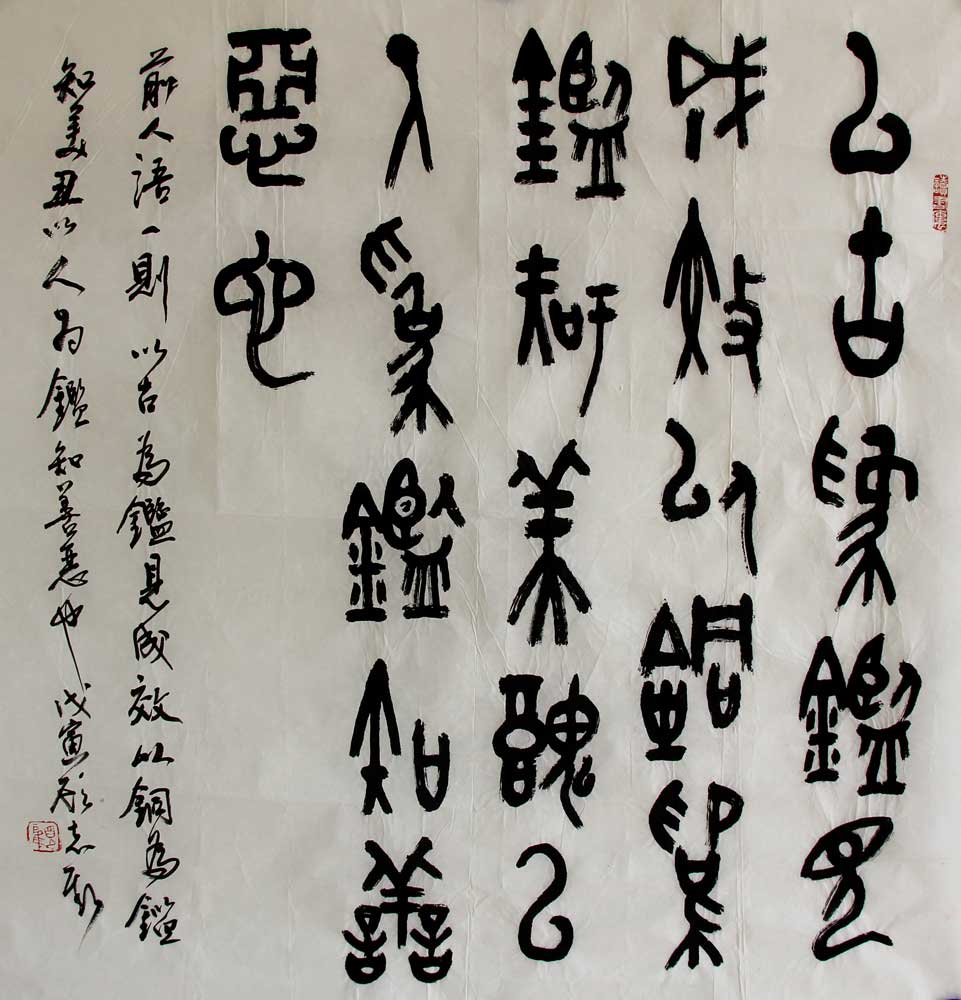 以古為鑑見
成效以銅為
鑑知美醜以
人為鑑知善
惡也
前人語一則 以古為鑑見成效以銅為鑑
知美丑以人为鑑知善惡也 戊寅